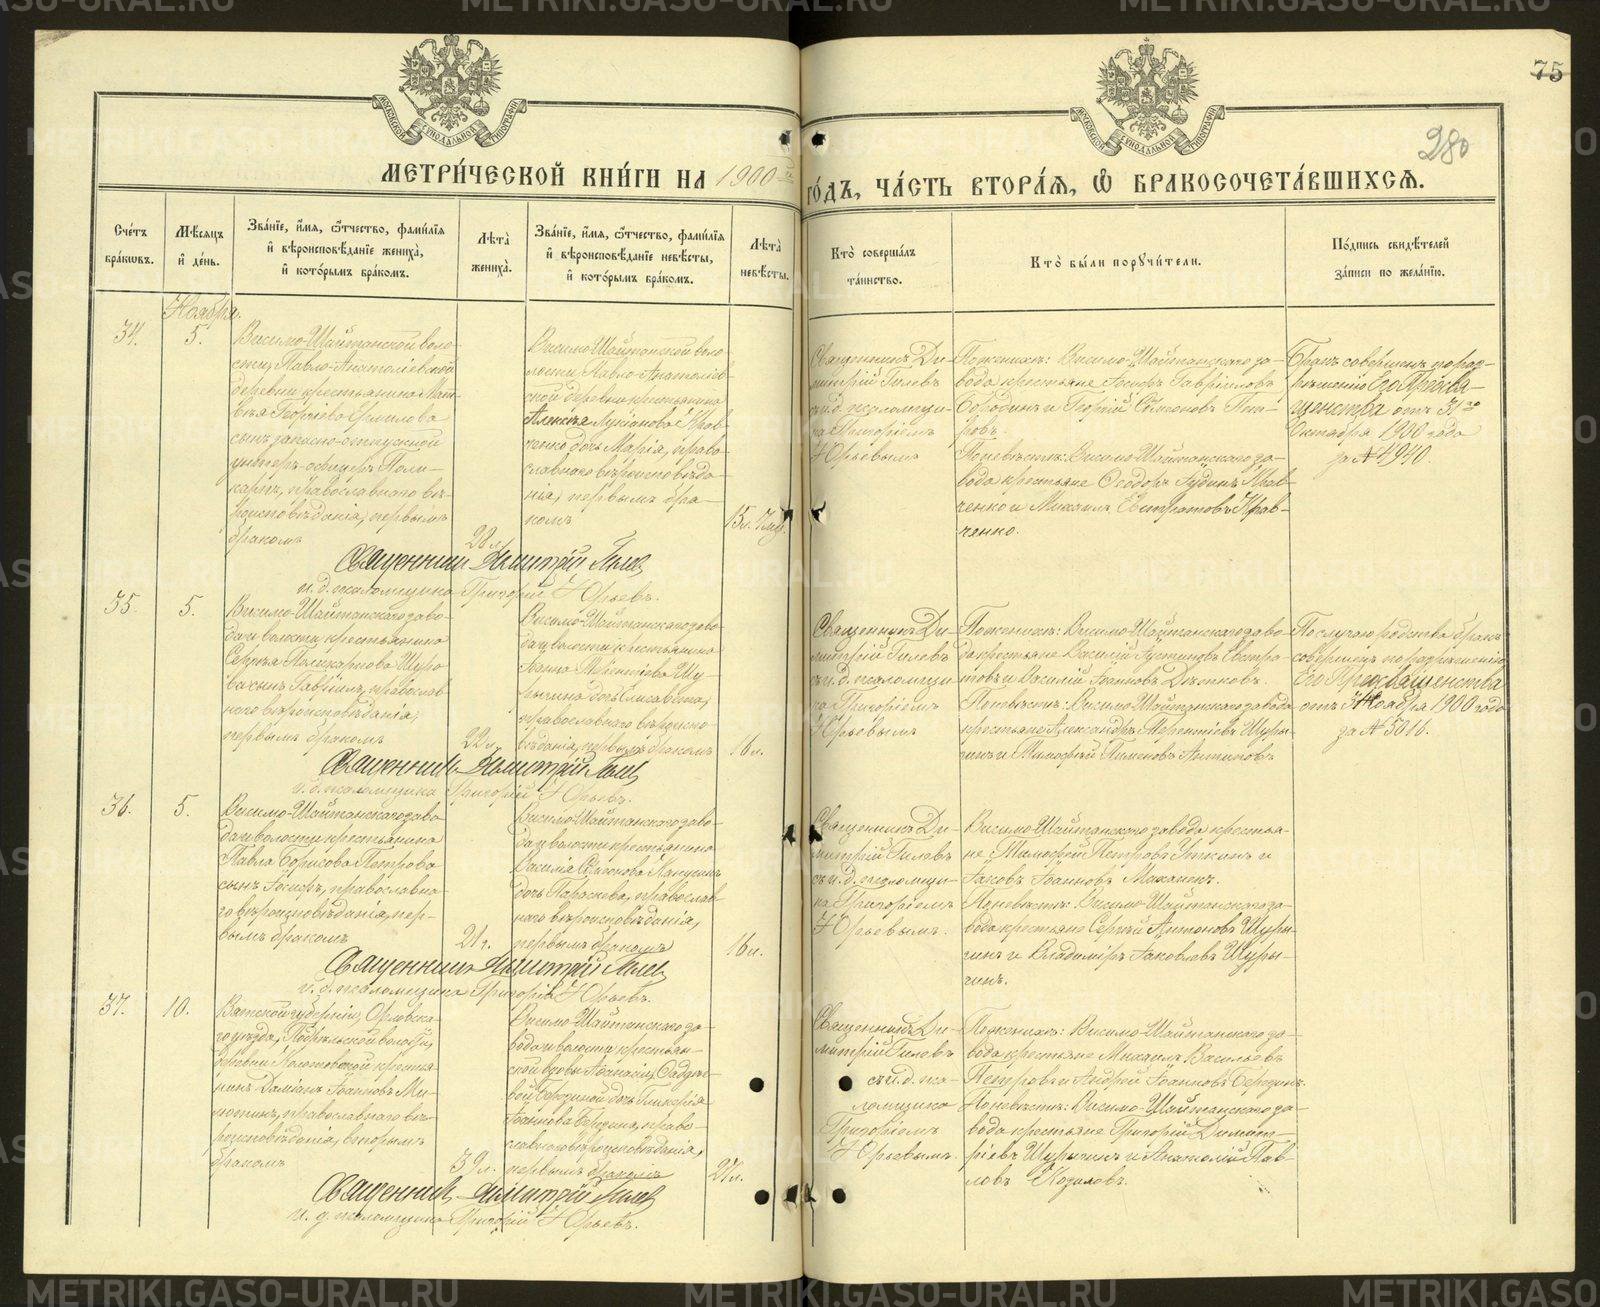 75
280
МОСКОВСКОЙ СѴНОДАЛЬНОЙ ТИПОГРАФІИ
МОСКОВСКОЙ СѴНОДАЛЬНОЙ ТИПОГРАФІИ
МЕТРИ́ЧЕСКОЙ КНИ́ГИ НА 1900 й
ГО́ДЪ, ЧА́СТЬ ВТОРА́Я, Ѽ БРАКОСОЧЕТА́ВШИХСЯ.
Сче́тъ
бра́кωвъ.
Мѣ́сяцъ
и҆ де́нь.
Зва́нїе, и҆́мя, ѻ҆́тчество, фами́лїя
и҆ вѣроисповѣ́данїе жениха̀,
и҆ кото́рымъ бра́комъ.
Лѣ́та
жениха̀.
Зва́нїе, и҆́мя, ѻ҆́тчество, фами́лїя
и҆ вѣроисповѣ́данїе невѣ́сты,
и҆ кото́рымъ бра́комъ.
Лѣ́та
невѣ́сты.
Кто̀ соверша́лъ
та́инство.
Кто̀ бы́ли порꙋчи́тели.
По́дпись свидѣ́телей
за́писи по жела́нїю.
Ноября.
34.
5.
Висимо-Шайтанской воло-
сти, Павло-Анатоліевской
деревни крестьянина Мат-
вѣя Георгіева
сынъ запасно-отпускной
унтеръ-офицеръ Поли-
карпъ, православнаго вѣ-
роисповѣданія, первымъ
бракомъ
28 л.
Висимо-Шайтанской воло-
лости Павло-Анатоліев-
ской деревни крестьянина
Алексѣя Лукіанова Крав-
ченко дочь Марія, право-
славнаго вѣроисповѣда-
нія, первымъ бра-
комъ
15 л.
Священникъ Ди-
митрій Гилевъ
съ и. д. псаломщи-
ка Григоріемъ
Юрьевымъ
По женихѣ: Висимо-Шайтанскаго за-
вода крестьяне Іосифъ Гавріиловъ
Бородинъ и Георгій Самсоновъ Пет-
ровъ.
По невѣстѣ: Висимо-Шайтанскаго за-
вода крестьяне Ѳеодоръ Крав-
ченко и Михаилъ Евстратовъ Крав-
ченко.
Бракъ совершенъ по раз-
рѣшенію Его Преосвя-
щенства отъ 31го
Октября 1900 года
за № 4940
Священникъ Димитрій Гилевъ
и. д. псаломщика Григорій Юрьевъ.
35.
5.
Висимо-Шайтанскаго заво-
да и волости крестьянина
Сергѣя Поликарпова
сынъ Гавріилъ, православ-
наго вѣроисповѣданія,
первымъ бракомъ
22 л.
Висимо-Шайтанскаго заво-
да и волости крестьянина
Іоанна Терентіева Шу-
рыгина дочь Елисавета,
православнаго вѣроиспо-
вѣданія, первымъ бракомъ
16 л.
Священникъ Ди-
митрій Гилевъ
съ и. д. псаломщи-
ка Григоріемъ
Юрьевымъ
По женихѣ: Висимо-Шайтанскаго заво-
да крестьяне Василій Іустиновъ Евстра-
товъ и Василій Іоанновъ
По невѣстѣ: Висимо-Шайтанскаго завода
крестьяне Александръ Терентіевъ Шуры-
гинъ и Тимоѳей Пименовъ Антиповъ.
По случаю родства бракъ
совершенъ по разрѣшенію
Его Преосвященства
отъ Ноября 1900 года
за № 5016.
Священникъ Димитрій Гилевъ
и. д. псаломщика Григорій Юрьевъ.
36.
5.
Висимо-Шайтанскаго заво-
да и волости крестьянина
Павла Борисова Петрова
сынъ Іосифъ, православна-
го вѣроисповѣданія, пер-
вымъ бракомъ
21 г.
Висимо-Шайтанскаго заво-
да и волости крестьянина
Василія
дочь Параскева, православ-
наго вѣроисповѣданія,
первымъ бракомъ
16 л.
Священникъ Ди-
митрій Гилевъ
съ и. д. псаломщи-
ка Григоріемъ
Юрьевымъ.
Висимо-Шайтанскаго завода крестья-
не: Тимофей Петровъ Уткинъ и
Іаковъ Іоанновъ
По невѣстѣ: Висимо-Шайтанскаго за-
вода крестьяне Сергѣй Антоновъ Шуры-
гинъ и Владиміръ Іаковлевъ Шуры-
гинъ.
Священникъ Димитрій Гилевъ
и. д. псаломщика Григорій Юрьевъ.
37.
10.
Вятской губерніи, Орловска-
го уѣзда, волости,
деревни крестья-
нинъ Даміанъ Іоанновъ Ми-
православнаго вѣ-
роисповѣданія, вторымъ
бракомъ
39 л.
Висимо-Шайтанскаго за-
вода и волости крестьян-
ской вдовы Аѳанасіи
Бородиной дочь Гликерія
Іоаннова православ-
славнаго вѣроисповѣданія,
первымъ бракомъ
27 л.
Священникъ Ди-
митрій Гилевъ
съ и. д. пса-
ломщика
Григоріемъ
Юрьевымъ.
По женихѣ: Висимо-Шайтанскаго за-
вода крестьяне Михаилъ Васильевъ
Петровъ и Андрей Іоанновъ
По невѣстѣ: Висимо-Шайтанскаго за-
вода крестьяне Григорій Димит-
ріевъ Шурыгинъ и Анатолій Пав-
ловъ Козаловъ.
Священникъ Димитрій Гилевъ
и. д. псаломщика Григорій Юрьевъ.
METRIKI.GASO-URAL.RU